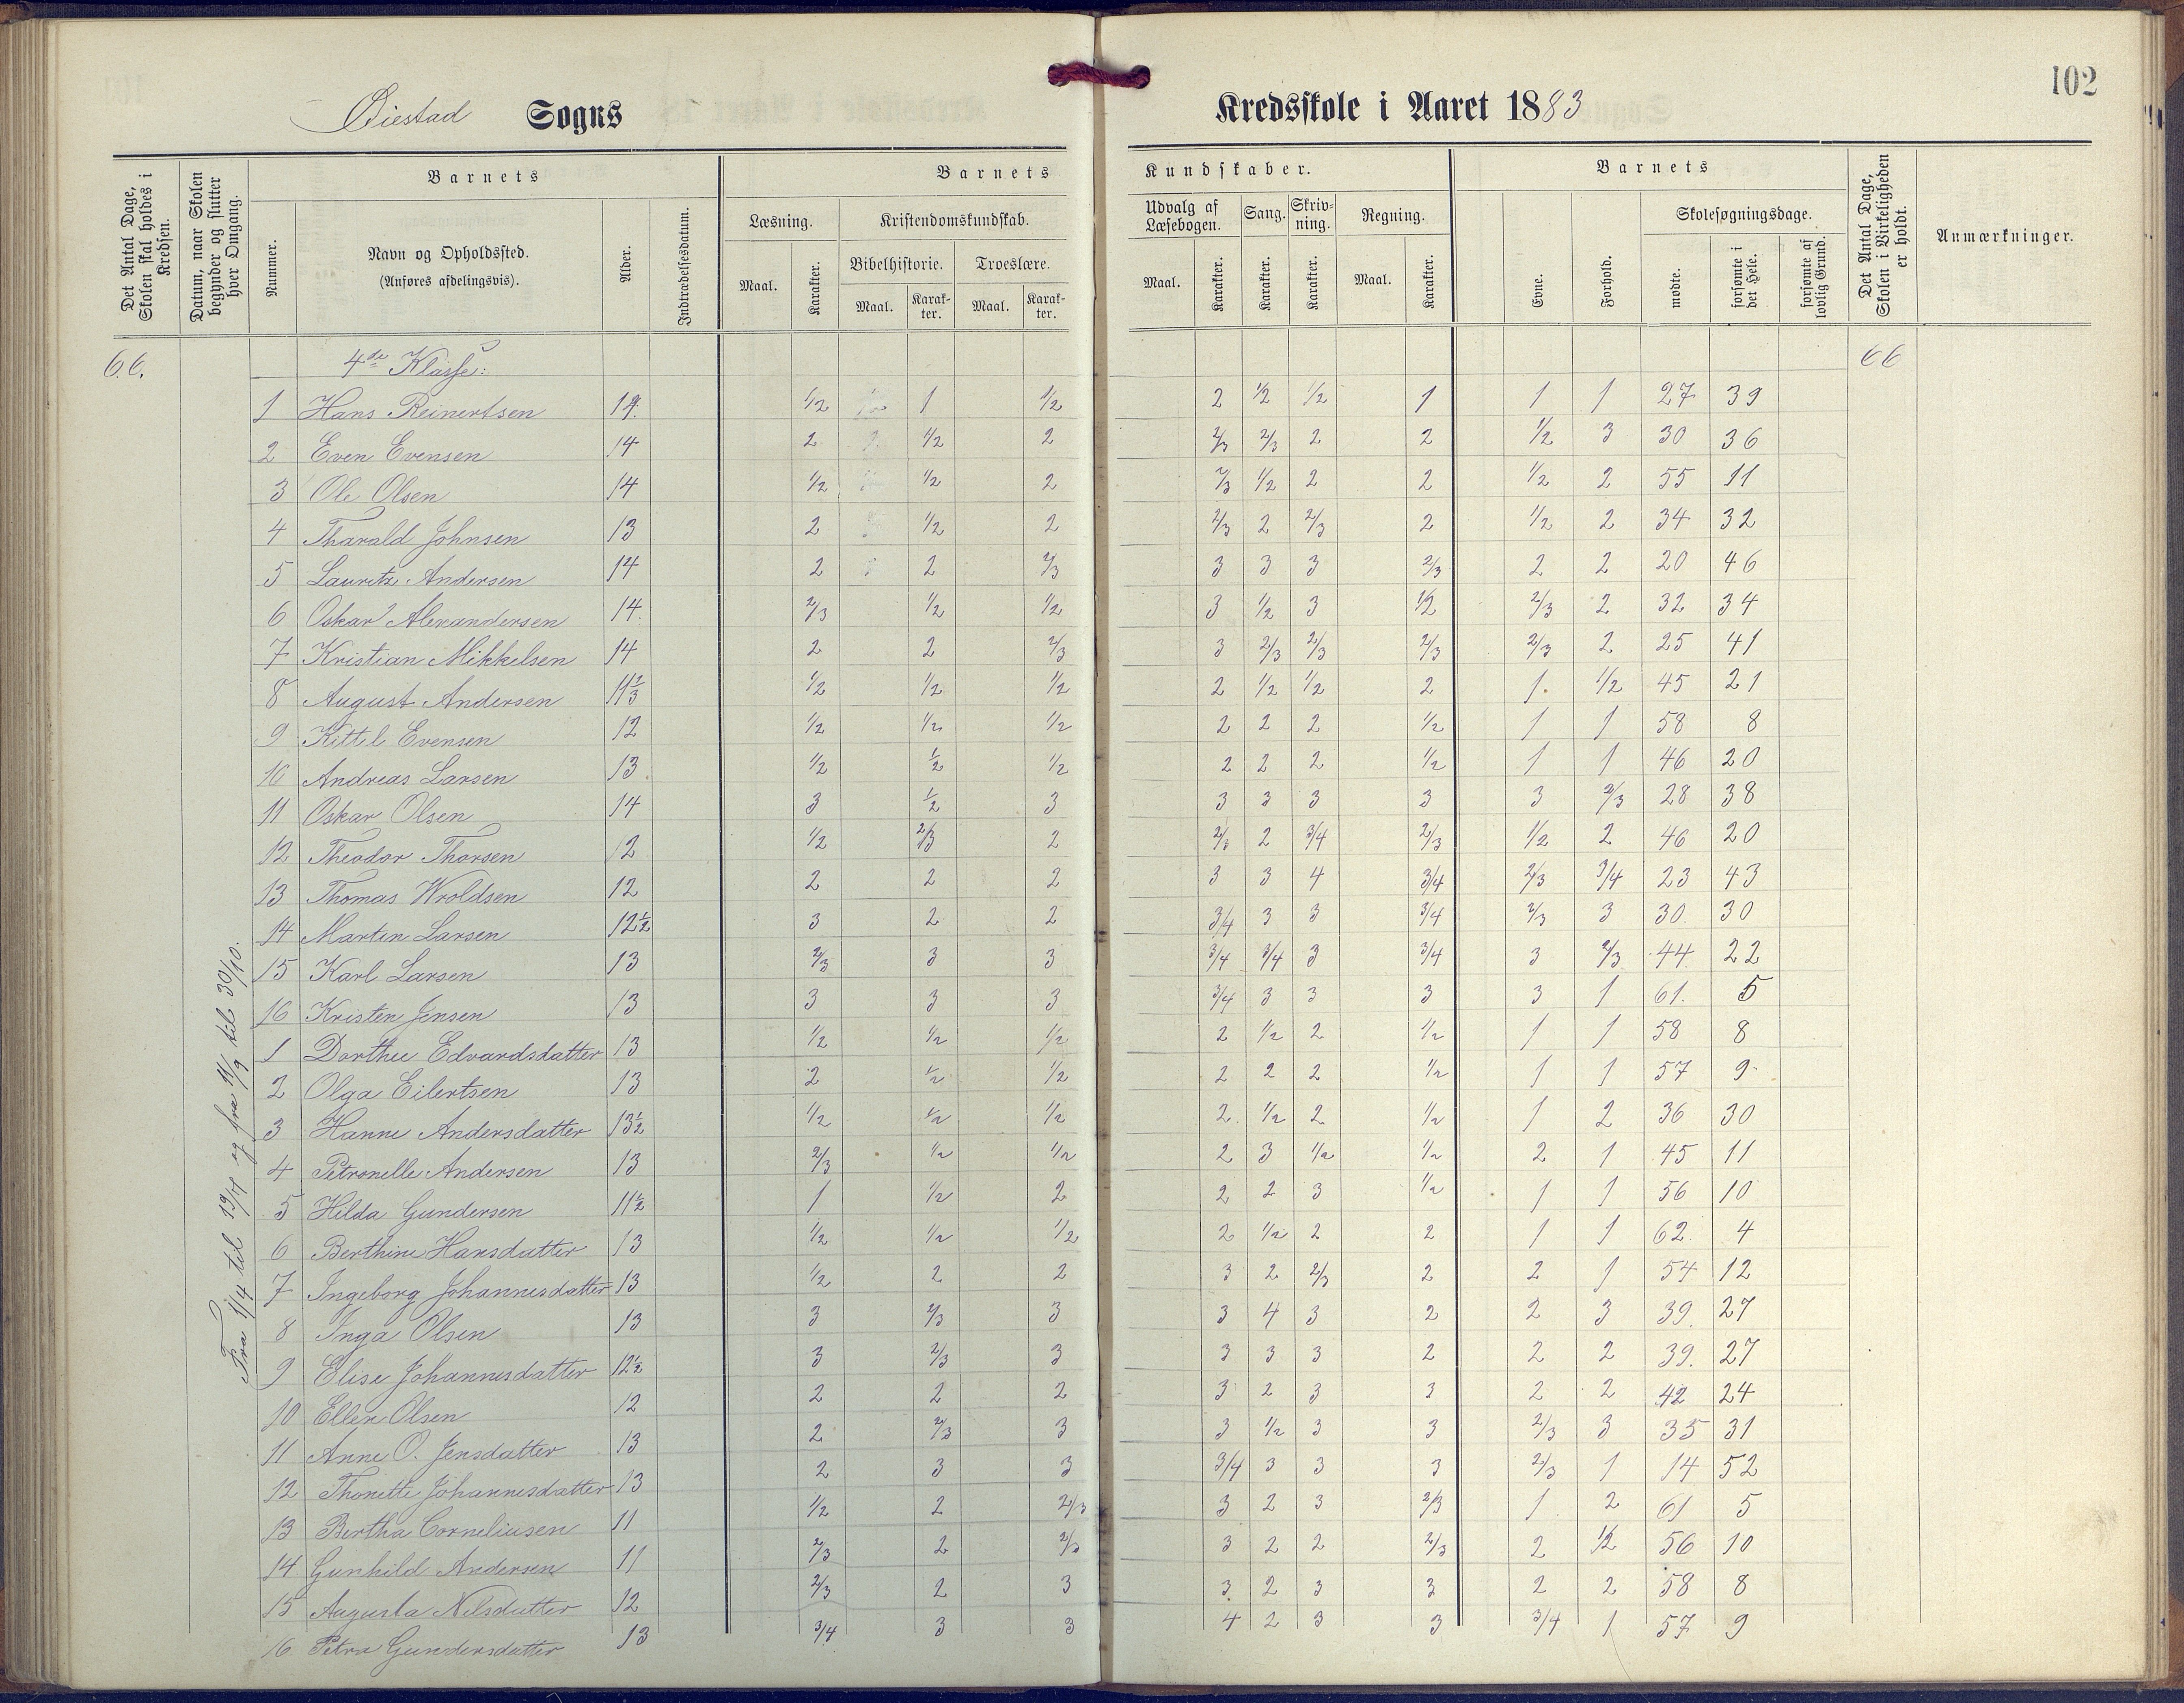 102
Øiestad Sogns Kredsskole i Aaret 1883
Det Antal Dage, Skolen skal holdes i Kredsen.
Datum, naar Skolen begynder og slutter hver Omgang.
Barnets
Nummer.
Navn og Opholdssted.
(Anføres afdelingsvis).
Alder.
Indtrædelsesdatum.
Barnets Kundskaber.
Læsning.
Maal. Karakter.
Kristendomskundskab.
Bibelhistorie. Troeslære.
Maal. Karakter. Maal. Karakter.
Udvalg af Læsebogen.
Maal. Karakter.
Sang.
Karakter.
Skrivning.
Karakter.
Regning.
Maal. Karakter.
Barnets
Evne. Forhold.
Skolesøgningsdage.
mødte. forsømte i det Hele. forsømte af lovlig Grund.
Det Antal Dage, Skolen i Virkeligheden er holdt.
Anmærkninger.
66. 4de Klasse: 66
Fra 1/4 til 19/4 og fra 11/9 til 30/10.
1 Hans Reinertsen 14. 1/2 1 1/2 2 1/2 1/2 1 1 1 27 39
2 Even Evensen 14 2 1/2 2 2/3 2/3 2 2 1/2 3 30 36
3 Ole Olsen 14 1/2 1/2 2 2/3 1/2 2 2 1/2 2 55 11
4 Tharald Johnsen 13 2 1/2 2 2/3 2 2/3 2 1/2 2 34 32
5 Lauritz Andersen 14 2 2 2/3 3 3 3 2/3 2 2 20 46
6 Oskar Alexandersen 14. 2/3 1/2 1/2 3 1/2 3 1/2 2/3 2 32 34
7 Kristian Mikkelsen 14 2 2 2/3 3 2/3 2/3 2/3 2/3 2 25 41
8 August Andersen 11 1/2 1/2 1/2 2 1/2 1/2 2 1. 1/2 45 21
9 Kittil Evensen 12 1/2 1/2 1/2 2 2 2 1/2 1 1 58 8
10 Andreas Larsen 13 1/2 1/2 1/2 2 2 2 1/2 1 1 46 20
11 Oskar Olsen 14 3 1/2 3 3 3 3 3 3 2/3 28 38
12 Theodor Thorsen 12 1/2 2/3 2 2/3 2 3/4 2/3 1/2 2 46 20
13 Thomas Wroldsen 12 2 2 2 3 3 4 3/4 2/3 3/4 23 43
14 Martin Larsen 12 1/2 3 2 2 3/4 3 3 3/4 2/3 3 30. 30
15 Karl Larsen 13 2/3 3 3 3/4 3/4 3 3/4 3 2/3 44 22
16 Kristen Jensen 13 3 3 3 3/4 3 3 3 3 1 61. 5
1 Dorthee Edvardsdatter 13 1/2 1/2 1/2 2 1/2 2 1/2 1 1 58 8
2 Olga Eilertsen 13 2 1/2 1/2 2 2 2 1/2 1 1 57 9
3 Hanne Andersdatter 13 1/2 1/2 1/2 1/2 2 1/2 2 1/2 1 2 36 30
4 Petronelle Andersen 13 2/3 1/2 1/2 2 3 1/2 1/2 2 1 45 11
5 Hilda Gundersen 11 1/2 1 1/2 2 2 2 3 1/2 1 1 56 10
6 Berthine Hansdatter 13 1/2 1/2 1/2 2 1/2 2 2 1 1 62 4
7 Ingeborg Johannesdatter 13 1/2 2 2 3 2 2/3 2 2 1 54 12
8 Inga Olsen 13 3 2/3 3 3 4 3 2 2 3 39. 27
9 Elise Johannesdatter 12 1/2 3 2/3 3 3 3 3 2 2 2 39. 27
10 Ellen Olsen 12 2 2 2 3 2 3 3 2 2 42 24
11 Anne O. Jensdatter 13 2 2/3 3 3 1/2 3 3 2/3 3 35 31
12 Thonette Johannesdatter 13 2 3 3 3/4 3 3 3 2/3 1 14 52
13 Bertha Corneliusen 11 1/2 2 2/3 3 2 3 2/3 1 2 61 5
14 Gunhild Andersen 11 2/3 2 2/3 3 2 2 2/3 2 1/2 56 10
15 Augusta Nilsdatter 12 2/3 2 3 3 2 3 3 2 2 58 8
16. Petra Gundersdatter 13 3/4 3 3 4 2 3 3 3/4 1 57 9